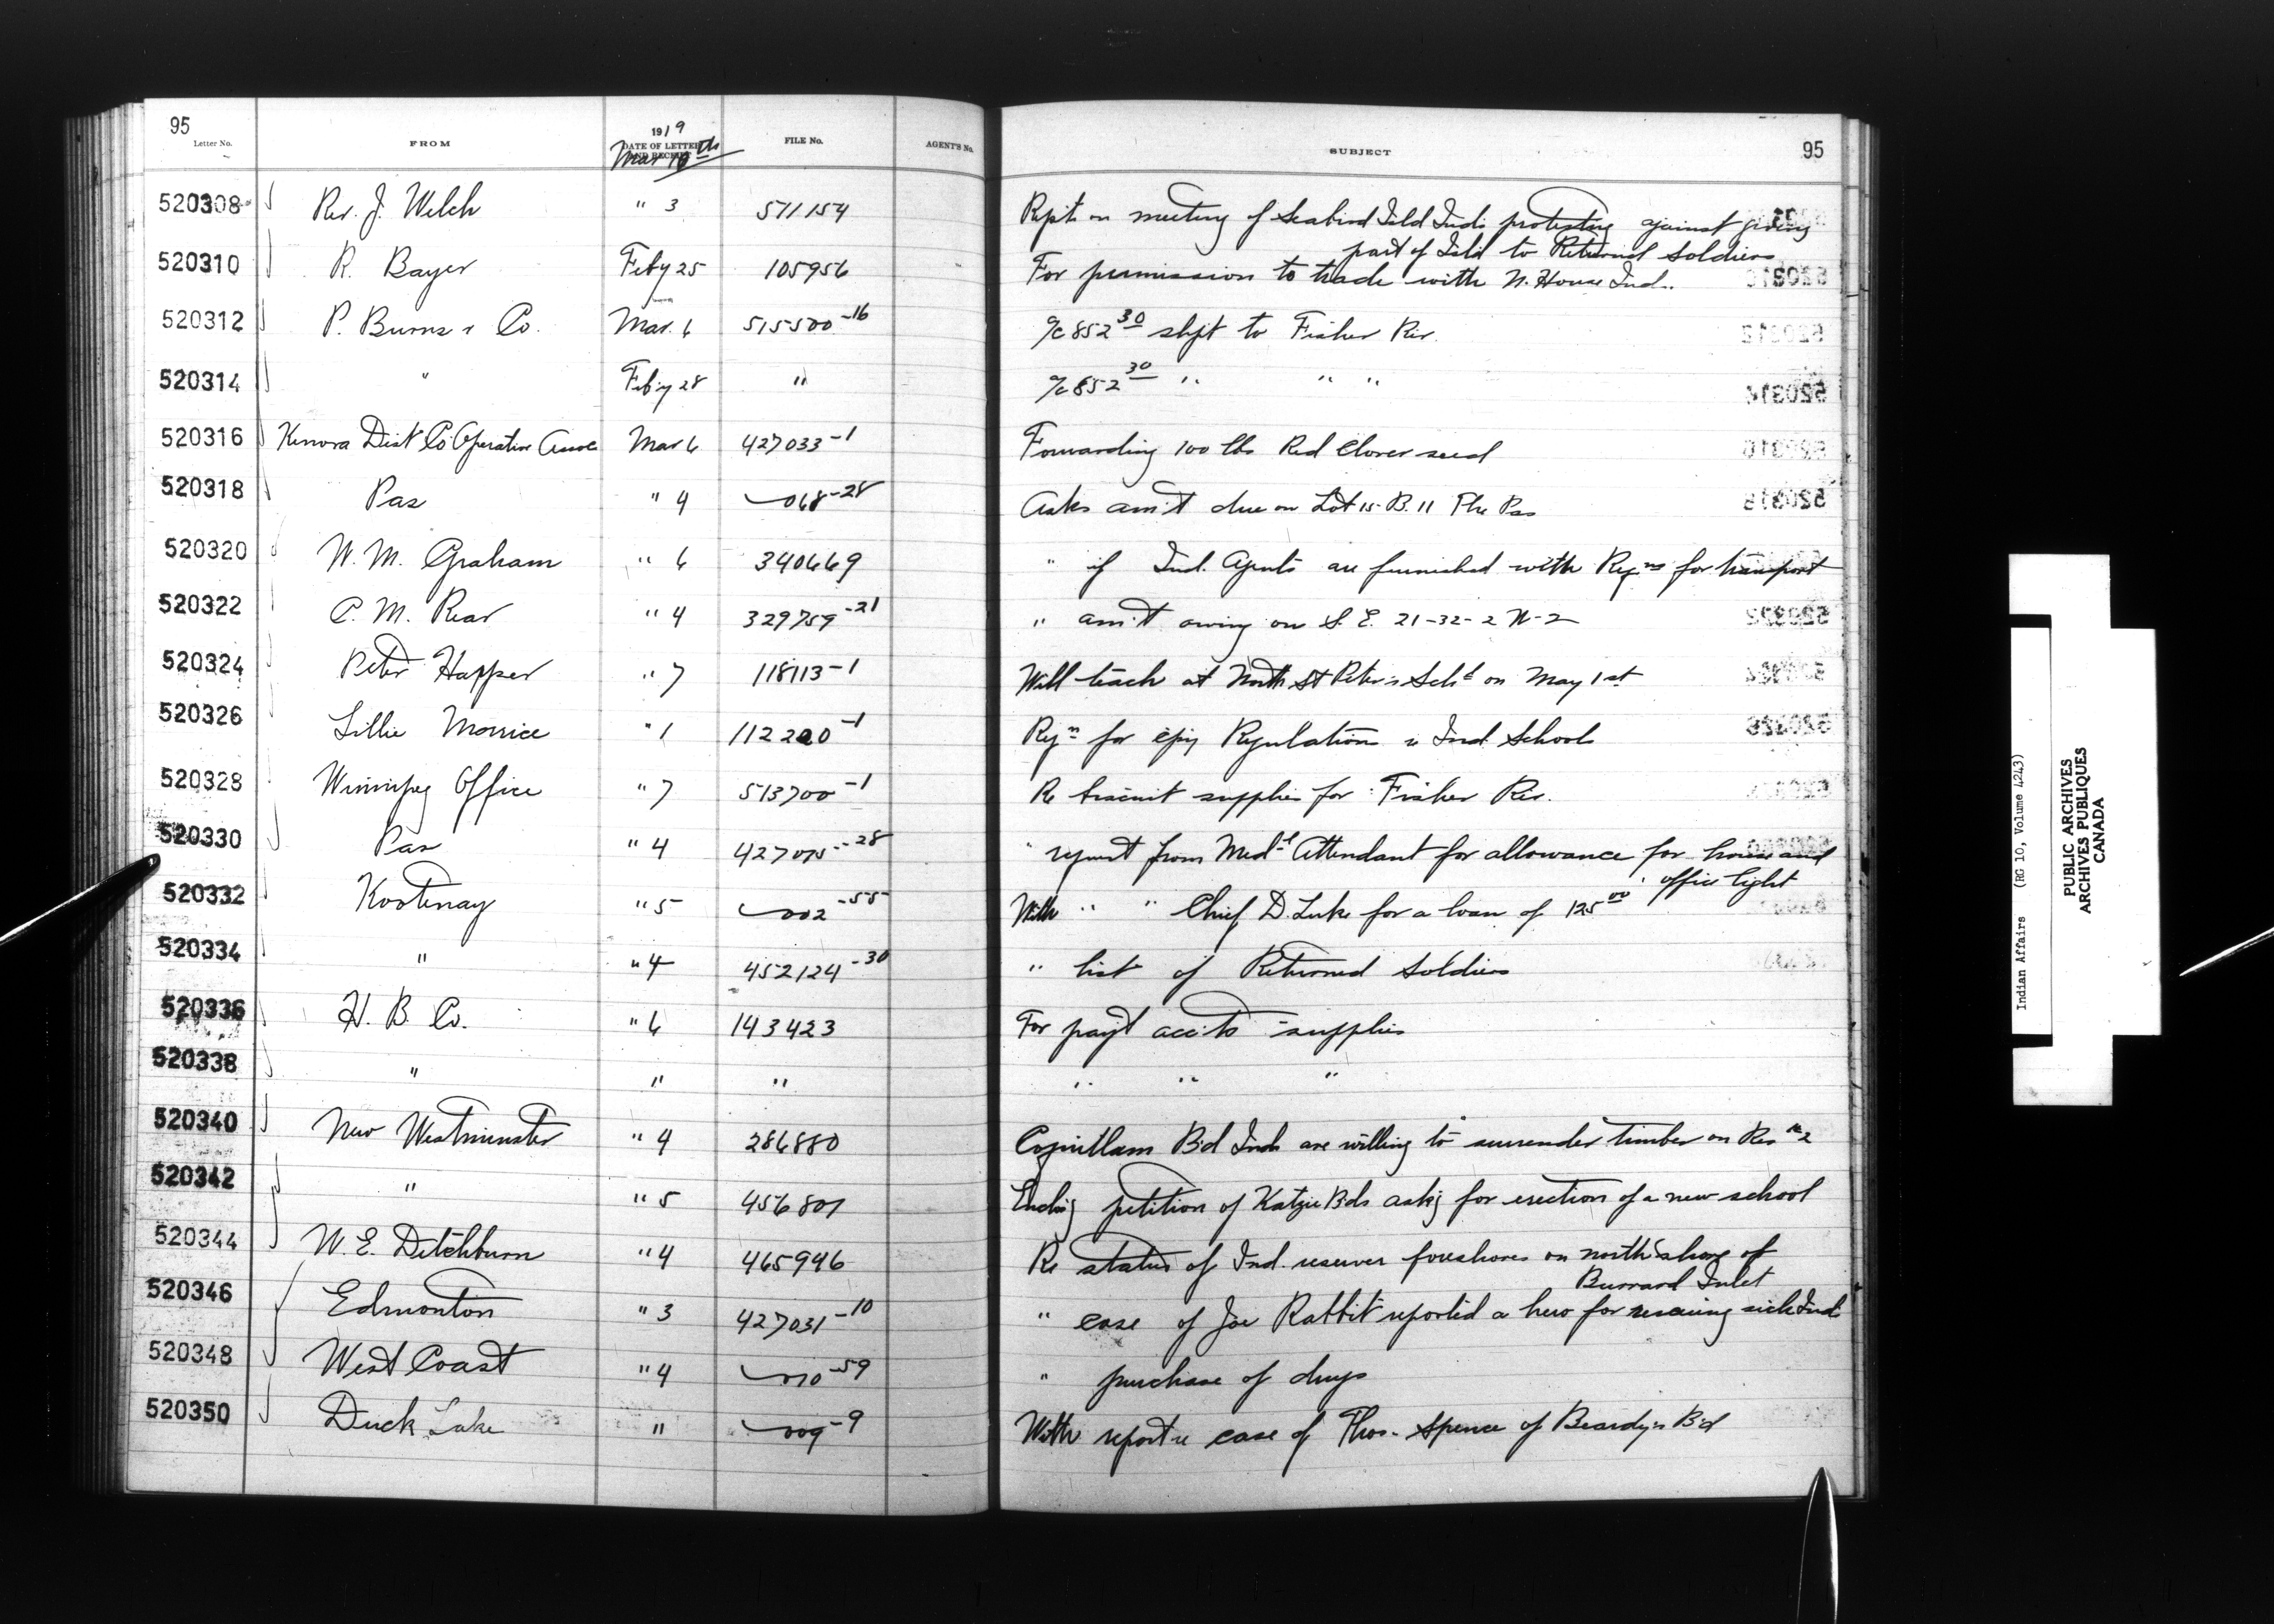 95
Letter No. FROM 1919 DATE OF LETTER AND RECEIPT FILE No. AGENT'S No. SUBJECT 95
Mar 10th
520308 Rev. J. Welch " 3 511154 Rep't on meeting of Seabird Isld Inds protesting against giving
part of Isld to Returned Soldiers
520310 R. Bayer Feby 25 105956 For permission to trade with N. House Ind.
520312 P. Burns & Co. Mar. 6 515500-16 a/c 852 30 shpt to Fisher Riv.
520314 " Feby 28 " a/c 852 30 " " "
520316 Kenora Dist Co Operative Assoc Mar 6 427033-1 Forwarding 100 lbs Red Clover seed
520318 Pas " 4 068-28 Asks am't due on Lot 15-B. 11 The Pas
520320 W. M. Graham " 6 340669 " if Ind. Agents are furnished with Reqns for transport
520322 C. M. Rear " 4 329759-21 " am't owing on S. E. 21-32-2 W-2
520324 Peter Happer " 7 118113-1 Will teach at North St Peter's Schl on May 1st
520326 Lillie Morrice " 1 112220-1 Reqn for cpy Regulations re Ind. Schools
520328 Winnipeg Office " 7 513700-1 Re biscuit supplies for Fisher Riv.
520330 Pas " 4 427075-28 " request from Medl Attendant for allowance for house and
office light
520332 Kootenay " 5 002-55 With " " Chief D. Luke for a loan of 125 00
520334 " " 4 452124-30 " list of Returned Soldiers
520336 H. B. Co. " 6 143423 For pay't acc'ts supplies
520338 " " " " " "
520340 New Westminster " 4 286880 Coquitlam Bd Inds are willing to surrender timber on Res No 2
520342 " " 5 456801 Encl'g petition of Katzie Bds ask'g for erection of a new school
520344 W. E. Ditchburn " 4 465946 Re status of Ind. reserves foreshores on north shore of
Burrard Inlet
520346 Edmonton " 3 427031-10 " case of Joe Rabbit reported a hero for rescuing sick Ind
520348 West Coast " 4 010-59 " purchase of drugs
520350 Duck Lake " 009-9 With report re case of Thos. Spence of Beardy's Bd
Indian Affairs (RG 10, Volume 4243)
PUBLIC ARCHIVES
ARCHIVES PUBLIQUES
CANADA